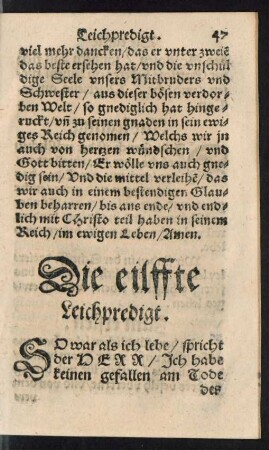 Leichpredigt. 47
viel mehr dancken/das er vnter zweiẽ
das beste ersehen hat/vnd die vnschül
dige Seele vnsers Mitbruders vnd
Schwester/aus dieser bösen verdor-
ben Welt/so gnediglich hat hinge-
ruckt/vñ zu seinen gnaden in sein ewi-
ges Reich genomen/Welchs wir jn
auch von hertzen wündschen/vnd
Gott bitten/Er wölle vns auch gne-
dig sein/Vnd die mittel verleihẽ/das
wir auch in einem bestendigen Glau-
ben beharren/bis ans ende/vnd end-
lich mit CHristo teil haben in seinem
Reich/im ewigen Leben/Amen.
Die eilffte
Leichpredigt.
SO war als ich lebe/spricht
der HERR/Ich habe
keinen gefallen am Tode
des